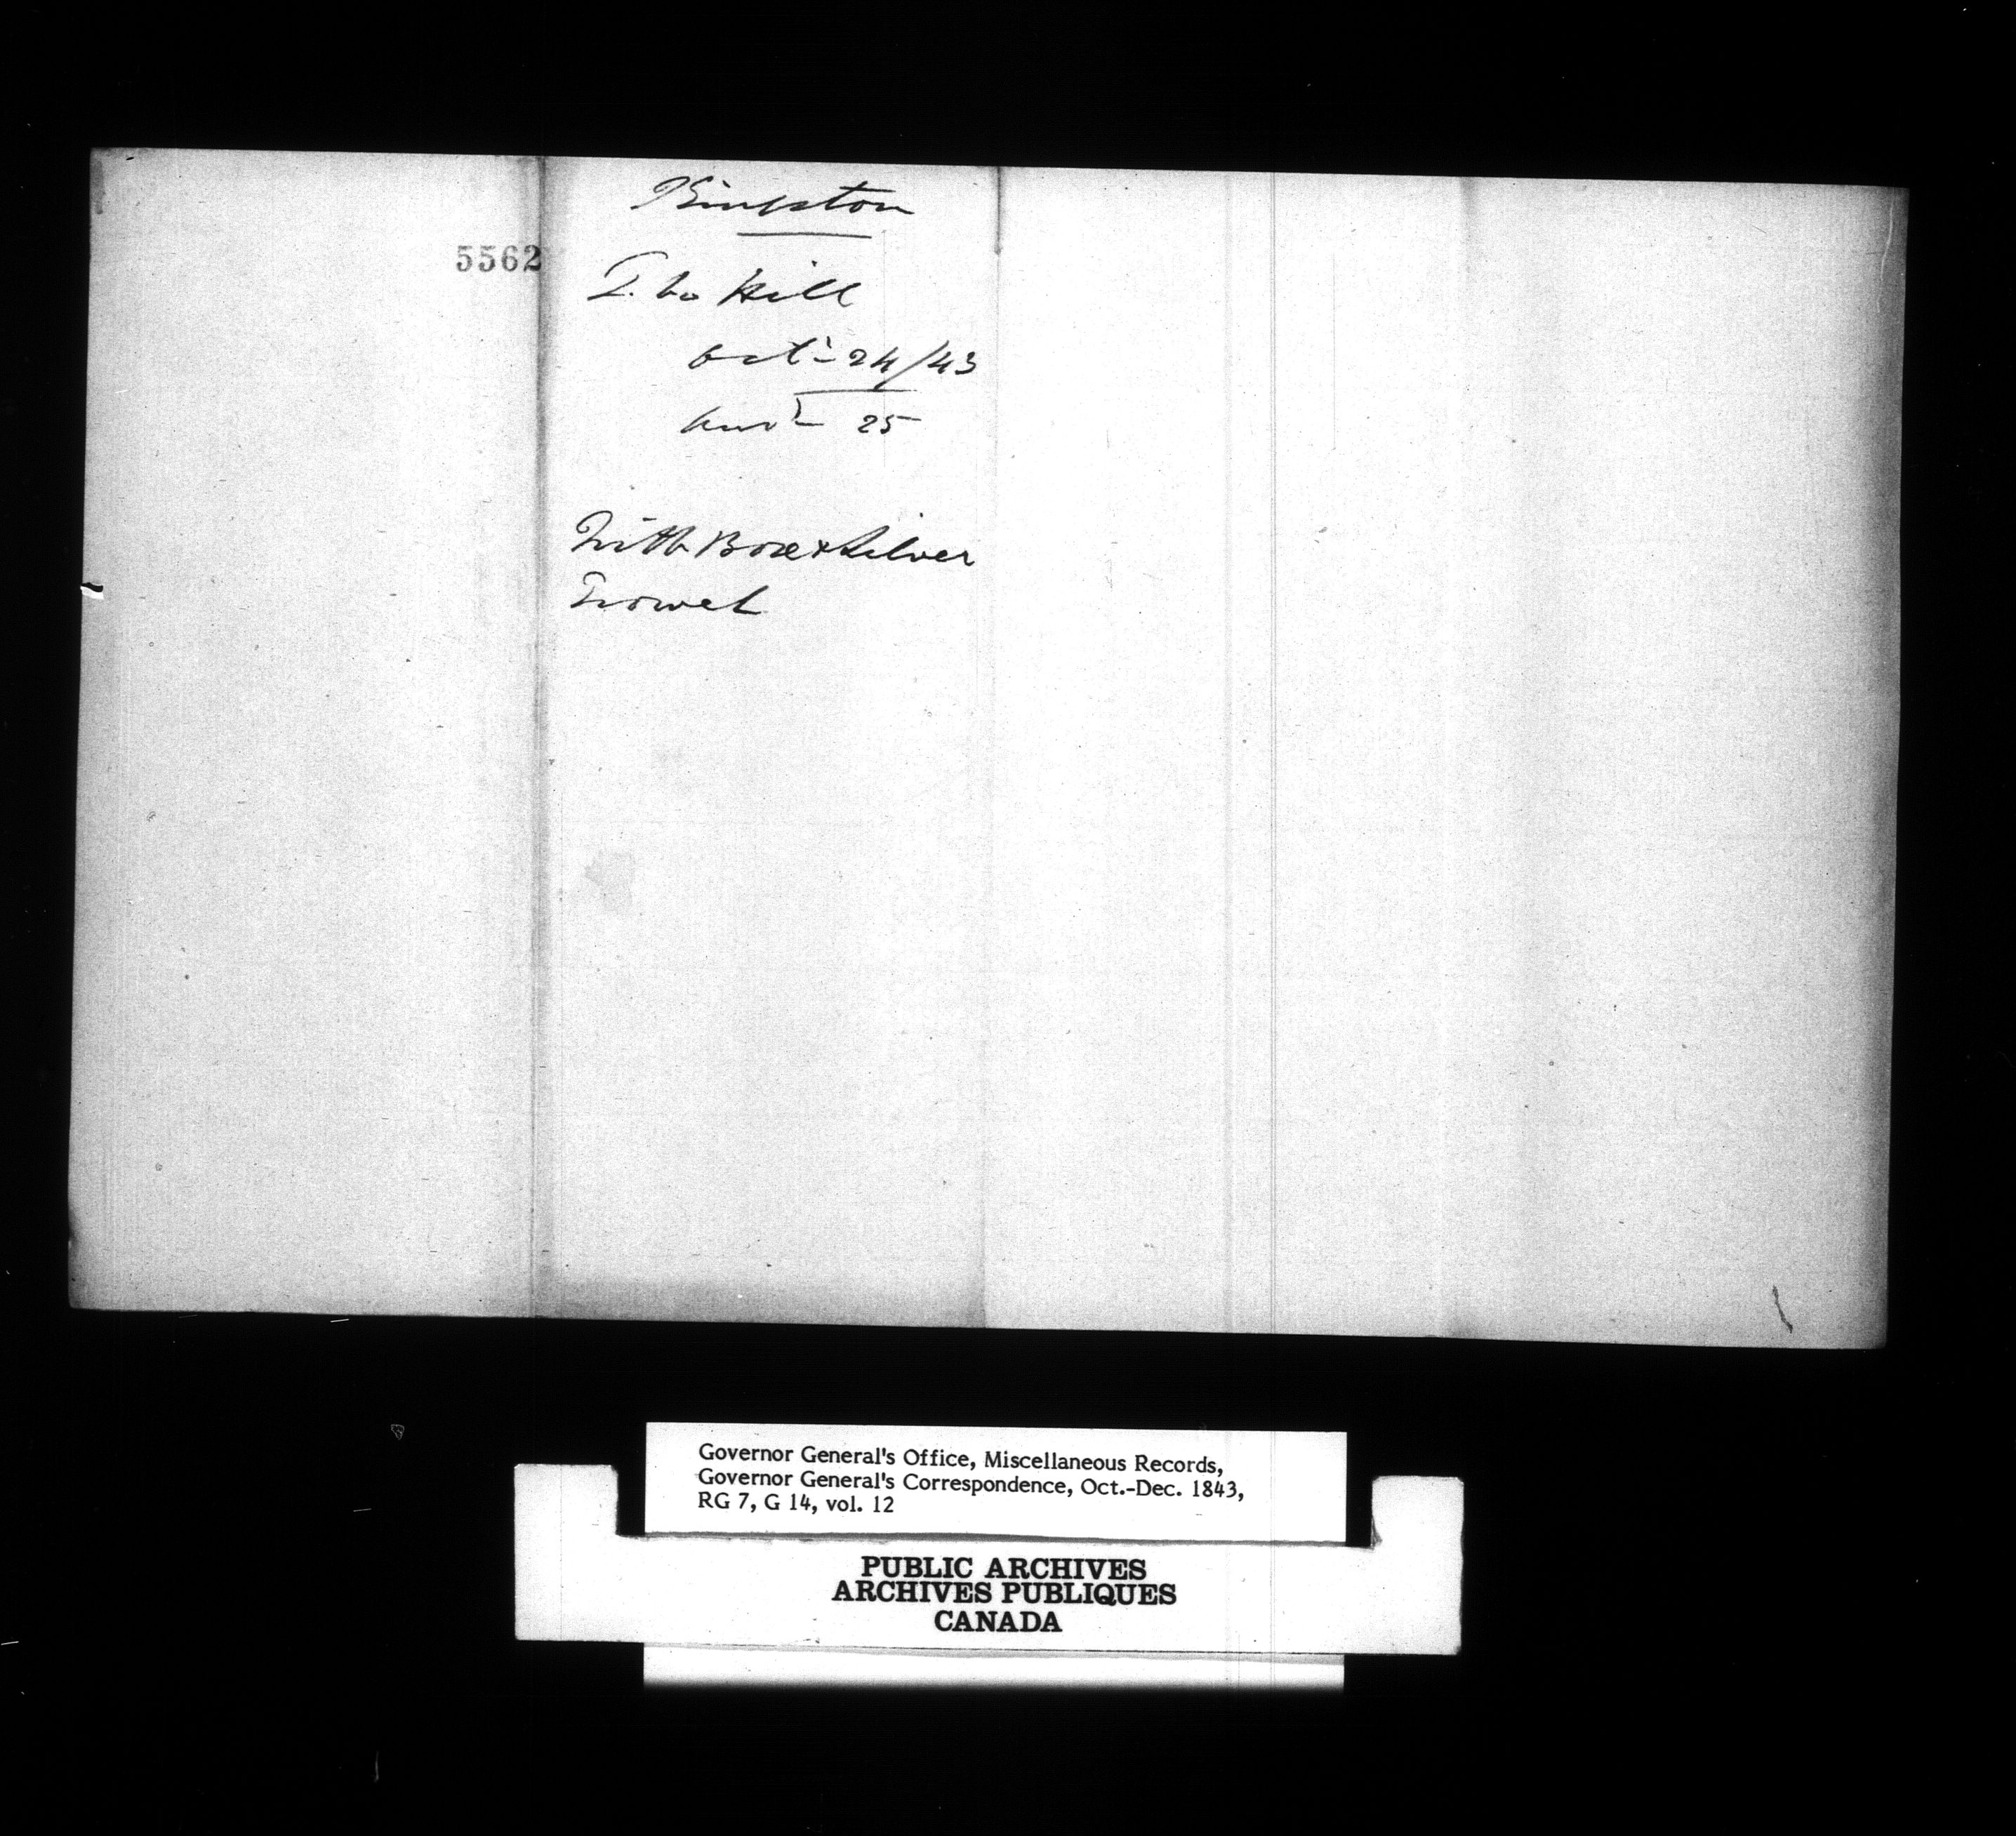 Kingston
5562
T. Hill
Oct. 24/43
Ansd 25
With Box & Silver
Trowel
Governor General's Office, Miscellaneous Records,
Governor General's Correspondence, Oct.-Dec. 1843,
RG 7, G 14, vol. 12
PUBLIC ARCHIVES
ARCHIVES PUBLIQUES
CANADA